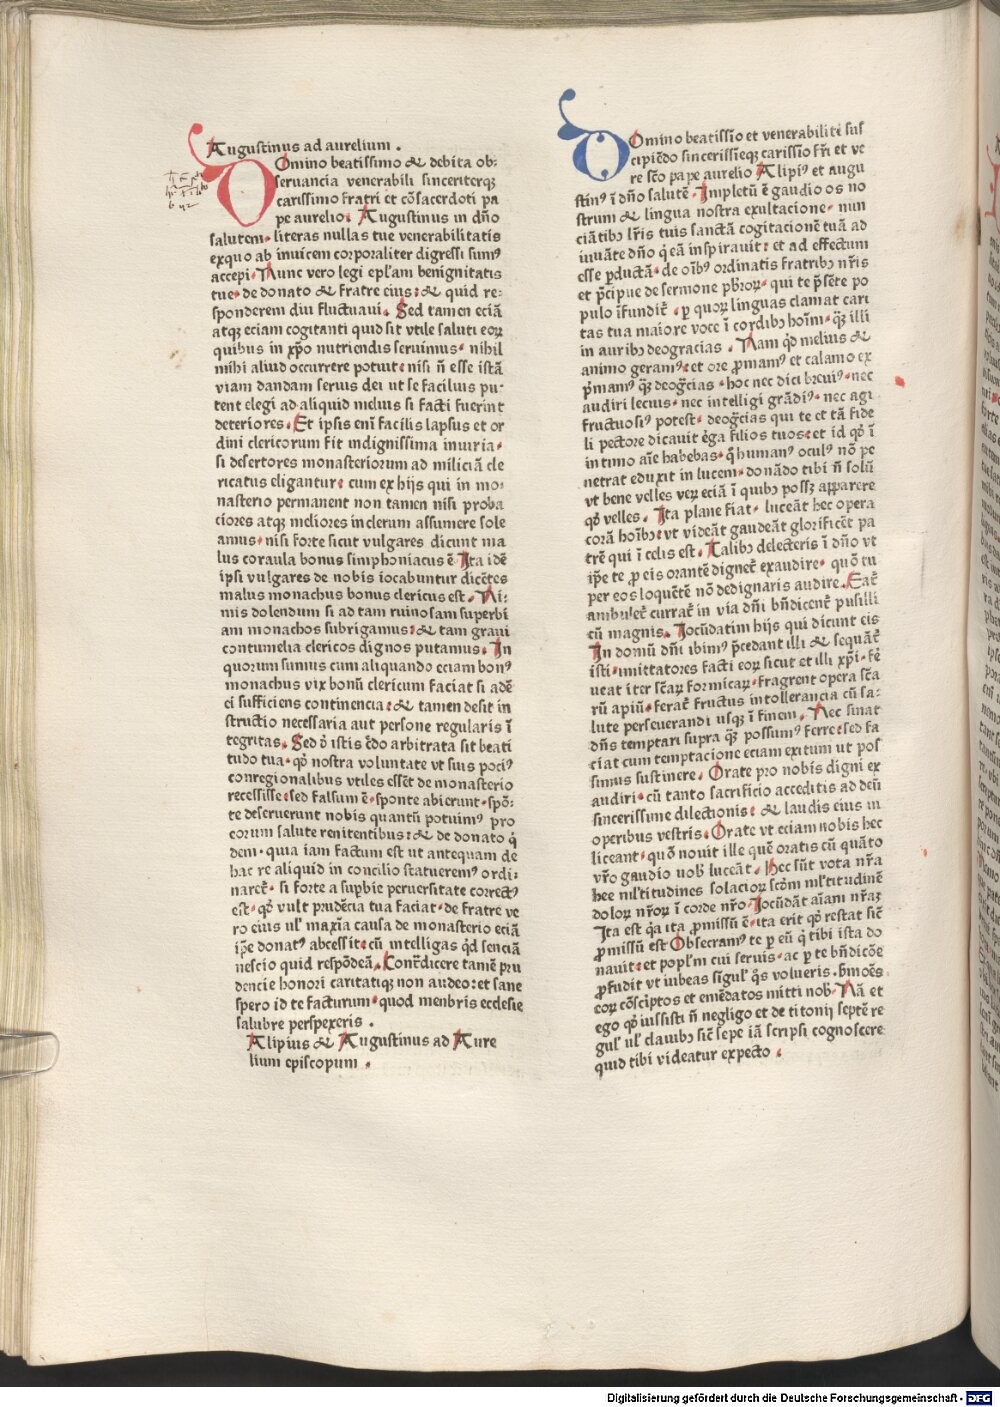 Augustinus ad aurelium .
Domino beatissimo & debita ob⸗
seruancia venerabili sinceriterqꝫ
carissimo fratri et cōsacerdoti pa
pe aurelio: Augustinus in dño
salutem. literas nullas tue venerabilitatis
exquo ab inuicem corporaliter digressi sumꝰ
accepi. Nunc vero legi epl̄am benignitatis
tue. de donato & fratre eius: & quid re⸗
sponderem diu fluctuaui. Sed tamen eciā
atqꝫ eciam cogitanti quid sit vtile saluti eoꝝ
quibus in xp̄o nutriendis seruimus. nihil
mihi aliud occurrere potuit: nisi ñ esse istā
viam dandam seruis dei ut se facilius pu⸗
tent elegi ad aliquid melius si facti fuerint
deteriores. Et ipsis eni facilis lapsus et or
dini clericorum fit indignissima iniuria.
si desertores monasteriorum ad miliciā cle
ricatus eligantur: cum ex hijs qui in mo⸗
nasterio permanent non tamen nisi proba
ciores atqꝫ meliores in clerum assumere sole
amus. nisi forte sicut vulgares dicunt ma
lus coraula bonus simphoniacus ē. Ita idē
ipsi vulgares de nobis iocabuntur dicētes
malus monachus bonus clericus est. Ni⸗
mis dolendum si ad tam ruinosam superbi
am monachos subrigamus: & tam graui
contumelia clericos dignos putamus. In
quorum sumus cum aliquando eciam bonꝰ
monachus vix bonū clericum faciat si adē
ei sufficiens continencia: & tamen desit in
structio necessaria aut persone regularis ī
tegritas. Sed ꝙ istis c̄do arbitrata sit beati
tudo tua. qꝙ nostra voluntate vt suis pociꝰ
conregionalibus vtiles essēt de monasterio
recessisse: sed falsum ē. sponte abierunt. spō⸗
te deseruerunt nobis quantū potuimꝰ pro
eorum salute renitentibus: & de donato q̇
dem. quia iam factum est ut antequam de
hac re aliquid in concilio statueremꝰ ordi⸗
naret̄. si forte a supbie peruersitate correctꝰ
est. qꝙ vult prudēcia tua faciat. de fratre ve
ro eius ul' maxīa causa de monasterio eciā
ip̄e donatꝰ abcessit: cū intelligas q̇d senciā
nescio quid respōdeā. Cont̄dicere tamē pru
dencie honori caritatiqꝫ non audeo: et sane
spero id te facturum. quod menbris ecclesie
salubre perspexeris .
Alipius & Augustinus ad Aure
lium episcopum .
Domino beatissīo et venerabilitē sus
cipiēdo sincerissieqꝫ carissīo fr̄i et ve
re sc̄o pape aurelio Alipiꝰ et augu
stinꝰ ī dño salutē. Impletū ē gaudio os no
strum & lingua nostra exultacione. nun
ciātibꝫ l̄ris tuis sanctā cogitacionē tuā ad
iuuāte dño q̇ eā inspirauit: et ad effectum
esse pductā. de oībꝰ ordinatis fratribꝫ nr̄is
et p̄cipue de sermone pb̄roꝝ. qui te p̄sēte po
pulo īfundit̄. p quoꝝ linguas clamat cari
tas tua maiore voce ī cordibꝫ hoīm. qꝫ illi
in auribꝫ deogracias . Nam q̇d melius &
animo geramꝰ: et ore pmamꝰ et calamo ex
p̄mamꝰ qꝫ deogr̄cias. hoc nec dici breuiꝰ. nec
audiri lecius. nec intelligi grādiꝰ. nec agi
fructuosiꝰ potest. deogr̄cias qui te et tā fide
li pectore dicauit ērga filios tuos: et id qꝙ ī
intimo aīe habebas. q̇ humanꝰ oculꝰ nō pe
netrat eduxit in lucem. donādo tibi ñ solū
vt bene velles veꝝ eciā ī quibꝫ possꝫ apparere
qꝙ velles. Ita plane fiat. luceāt hec opera
corā hoībꝫ: vt videāt gaudeāt glorificēt pa
trē qui ī celis est. Talibꝫ delecteris ī dño vt
ip̄e te p eis orantē dignet̄ exaudire. quō tu
per eos loquētē nō dedignaris audire. Eat̄
ambulet̄ currat̄ in via dñi bn̄dicent̄ pusilli
cū magnis. Jocūdatim hijs qui dicunt eis
In domū dñi ibimꝰ p̄cedant illi & sequāt̄
isti. imittatores facti eoꝝ sicut et illi xp̄i. fē
ueat iter sc̄aꝝ formicaꝝ. fragrent opera sc̄a
rū apiū. ferat̄ fructus in tollerancia cū sa⸗
lute perseuerandi usqꝫ ī finem. Nec sinat
dñs temptari supra qꝫ possumꝰ ferre: sed fa
ciat cum temptacione eciam exitum ut pos
simus sustinere. Orate pro nobis digni ex
audiri. cū tanto sacrificio acceditis ad deū
sincerissime dilectionis: & laudis eius in
operibus vestris. Orate vt eciam nobis hec
liceant. quō nouit ille quē oratis cū quāto
vr̄o gaudio uob' luceāt. Hec sūt vota nr̄a
hee ml'titudines solacioꝝ scōm ml'titudinē
doloꝝ nr̄oꝝ ī corde nr̄o. Jocūdāt aīam nr̄aꝫ
Ita est q̇a ita pmissū ē. ita erit qꝙ restat sic̄
pmissū est Obsecramꝰ te p eū q̇ tibi ista do
nauit: et popl'm cui seruis. ac p te bn̄dicōe
pfudit vt iubeas sigul' q̇s volueris. s̄moēs
eoꝝ cōsc̄iptos et emēdatos mitti nob. Nā et
ego qꝙ iussisti ñ negligo et de titonij septē re
gul' ul' clauibꝫ sic̄ sepe iā scripsi cognoscere
quid tibi videatur expecto .
Digitalisierung gefördert durch die Deutsche Forschungsgemeinschaft - DFG